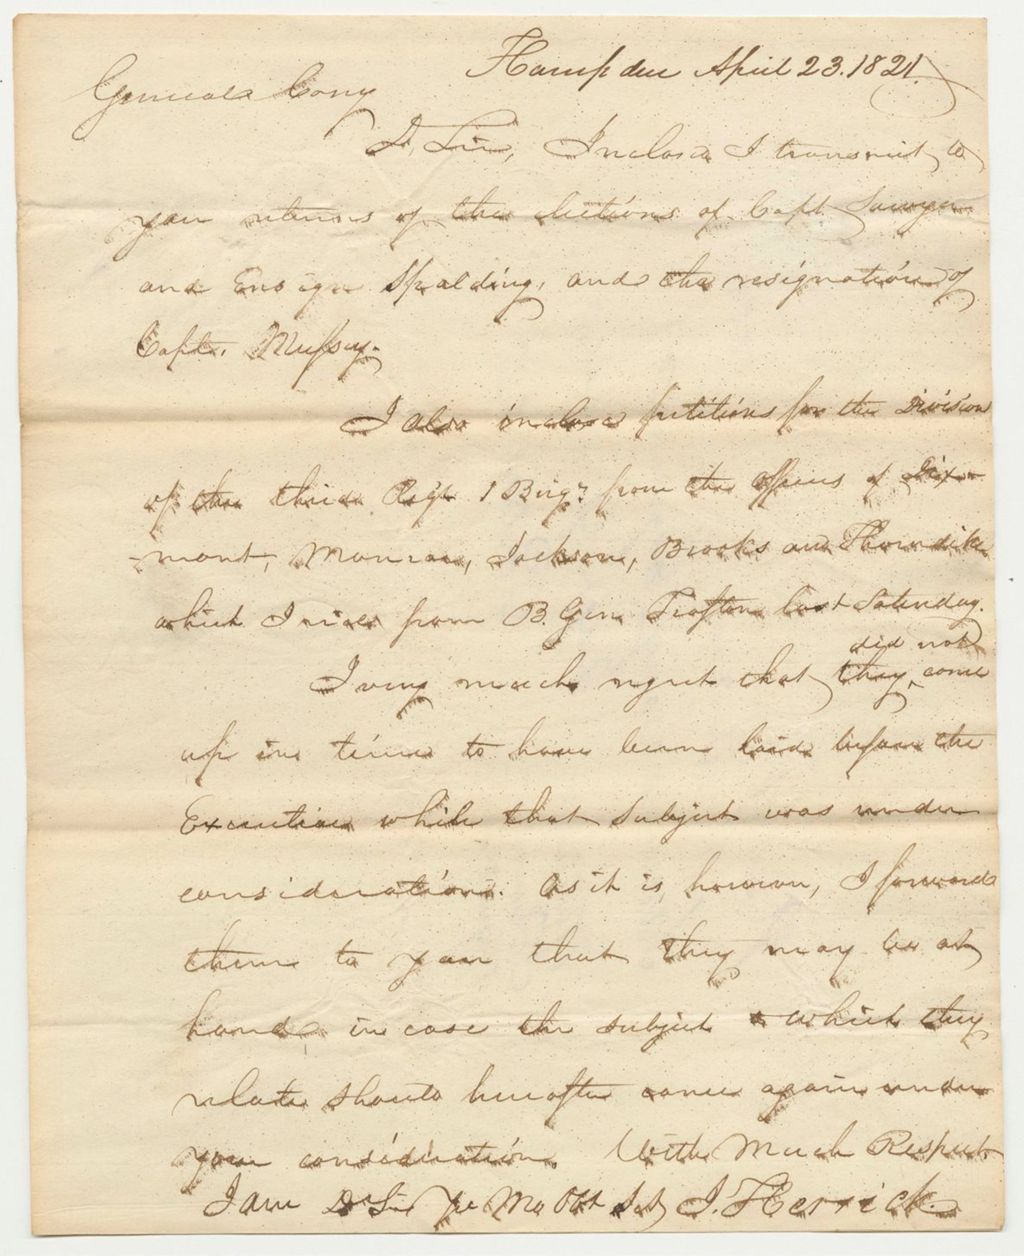 Hampden April 23. 1821.
General Cony
D. Sir, Inclosd I transmit to
you returns of the elections of Capt Sawyer
and Ensign Spalding, and the resignation of
Capt. Mussey.
I also inclose petitions for the Division
of the third Regt 1 Brigr from the officers of Dix-
-mont, Monroe, Jackson, Brooks and Thorndike
which I recd from B. Gen Trafton last Saturday.
did not
I very much regret that they ^ come
up in time to have been laid before the
Executive while that subject was under
consideration. As it is, however, I forward
them to you that they may be at
hand, in case the subject to which they
relate should hereafter come again under
your consideration. With Much Respect
I am Dr Sir Yr Mo Obt Set J. Herrick.